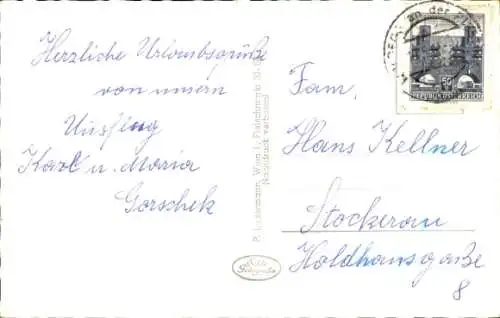 Herzliche Urlaubsgrüße
von unserm
Ausflug
Karl u. Maria
Gorschek
P. Ledermann, Wien I., Fleischmarkt
Nachdruck verboten!
an der
50
REPUBLIK ÖSTERREICH
Fam.
Hans Kellner
Stockerau
Holdhausgaße
8